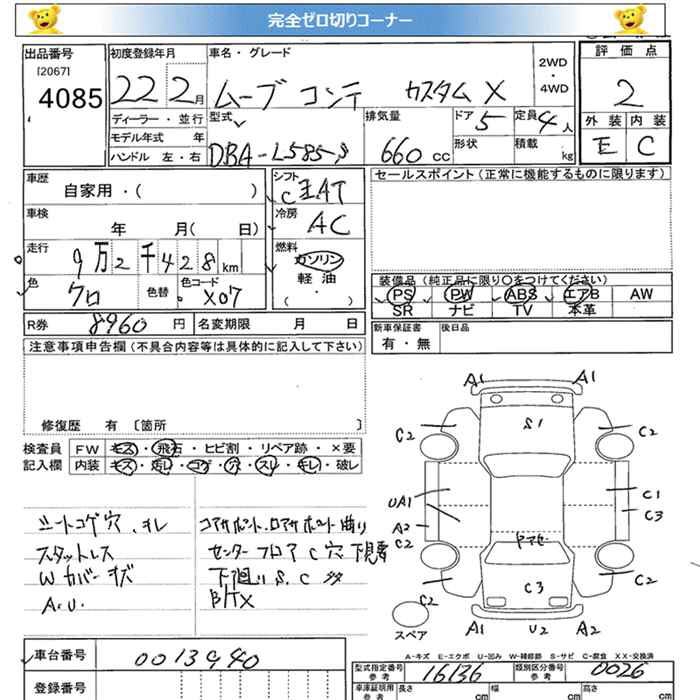 完全ゼロ切りコーナー
出品番号 初度登録年月 車名・グレード 評価点
[2067]
4085 22 2月 ムーブ コンテ カスタム X 2WD・4WD 2
ディーラー・並行 型式 排気量 ドア 5 定員 4人 外装 内装
モデル年式 年 形状 積載 kg E C
ハンドル 左・右 DBA-L585S 660cc
車歴 シフト セールスポイント(正常に機能するものに限ります)
自家用・( )
車検 冷房 AC
年 月( 日)
走行 燃料
9万2千428km ガソリン
軽油
( ・ )
色 色替 色コード 装備品(純正品に限り○をつけてください)
クロ X07 PS PW ABS エアB AW
SR ナビ TV 本革
R券 8960円 名変期限 月 日 新車保証書 後日品
有・無
注意事項申告欄(不具合内容等は具体的に記入して下さい)
修復歴 有 〔箇所 〕
検査員 FW キズ・飛石・ヒビ割・リペア跡・×要
記入欄 内装 キズ・汚レ・コゲ・穴・スリ・キレ・破レ
シートコゲ穴、キレ
スタットレス
Wカバーキズ
センターフロアC穴 下見要
下廻りS.C
A1 A1
S1
C2 C2
UA1 C1
A2 C3
C2
C3
C2 C2
A1 U2 A2
スペア
A-キズ E-エクボ U-凹み W-補修跡 S-サビ C-腐食 XX-交換済
車台番号 0013940 型式指定番号 参考 16136 類別区分番号 参考 0026
登録番号 車庫証明用 参考 長さ cm 幅 cm 高さ cm